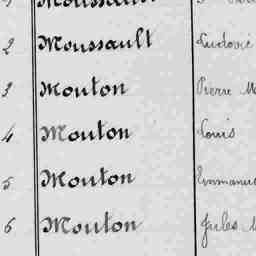 2 Moussault Ludovic
3 Mouton Pierre M
4 Mouton Louis
5 Mouton Emmanue
6 Mouton Jules M